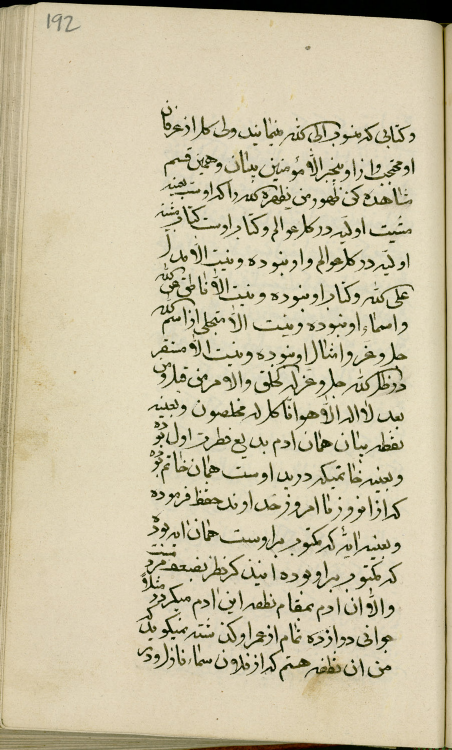 192
وکتابی که منسوب الی الله مینمایند ولی کل از عرفان
او محتجب و از او بخبر الا مؤمنین ببیان وهمین قسم
مشاهده کن ظهور من یظهره الله را که اوست بعینه
مشیت اولیه در کل عوالم وکتاب اوست کتاب مشیت
اولیه در کل عوالم و او بوده ونیست الا مدل
علی الله وکتاب او نبوده ونیست الا ناطق عن الله
واسماء او نبوده ونیست الا متجلی از اسم الله
جل وعز وامثال او نبوده ونیست الا مستقر
در ظل الله جل وعز له الخلق والامر من قبل ومن
بعد لا اله الا هو انا کل له مخلصون وبعینه
نقطه بیان همان ادم بدیع فطرت اول بوده
وبعینه خاتمیکه در ید اوست همان خاتم بوده
که از انروز تا امروز خداوند حفظ فرموده
وبعینه ایه که مکتوب بر اوست همان ایه بوده
که مکتوب بر او بوده این ذکر نظر بضعف مردم است
والا ان ادم بمقام نطفه این ادم میگردد مثلا
جوانی دوازده تمام از عمر او گذشته نمیگوید که
من ان نطفه هستم که از فلان سماء نازل ودر